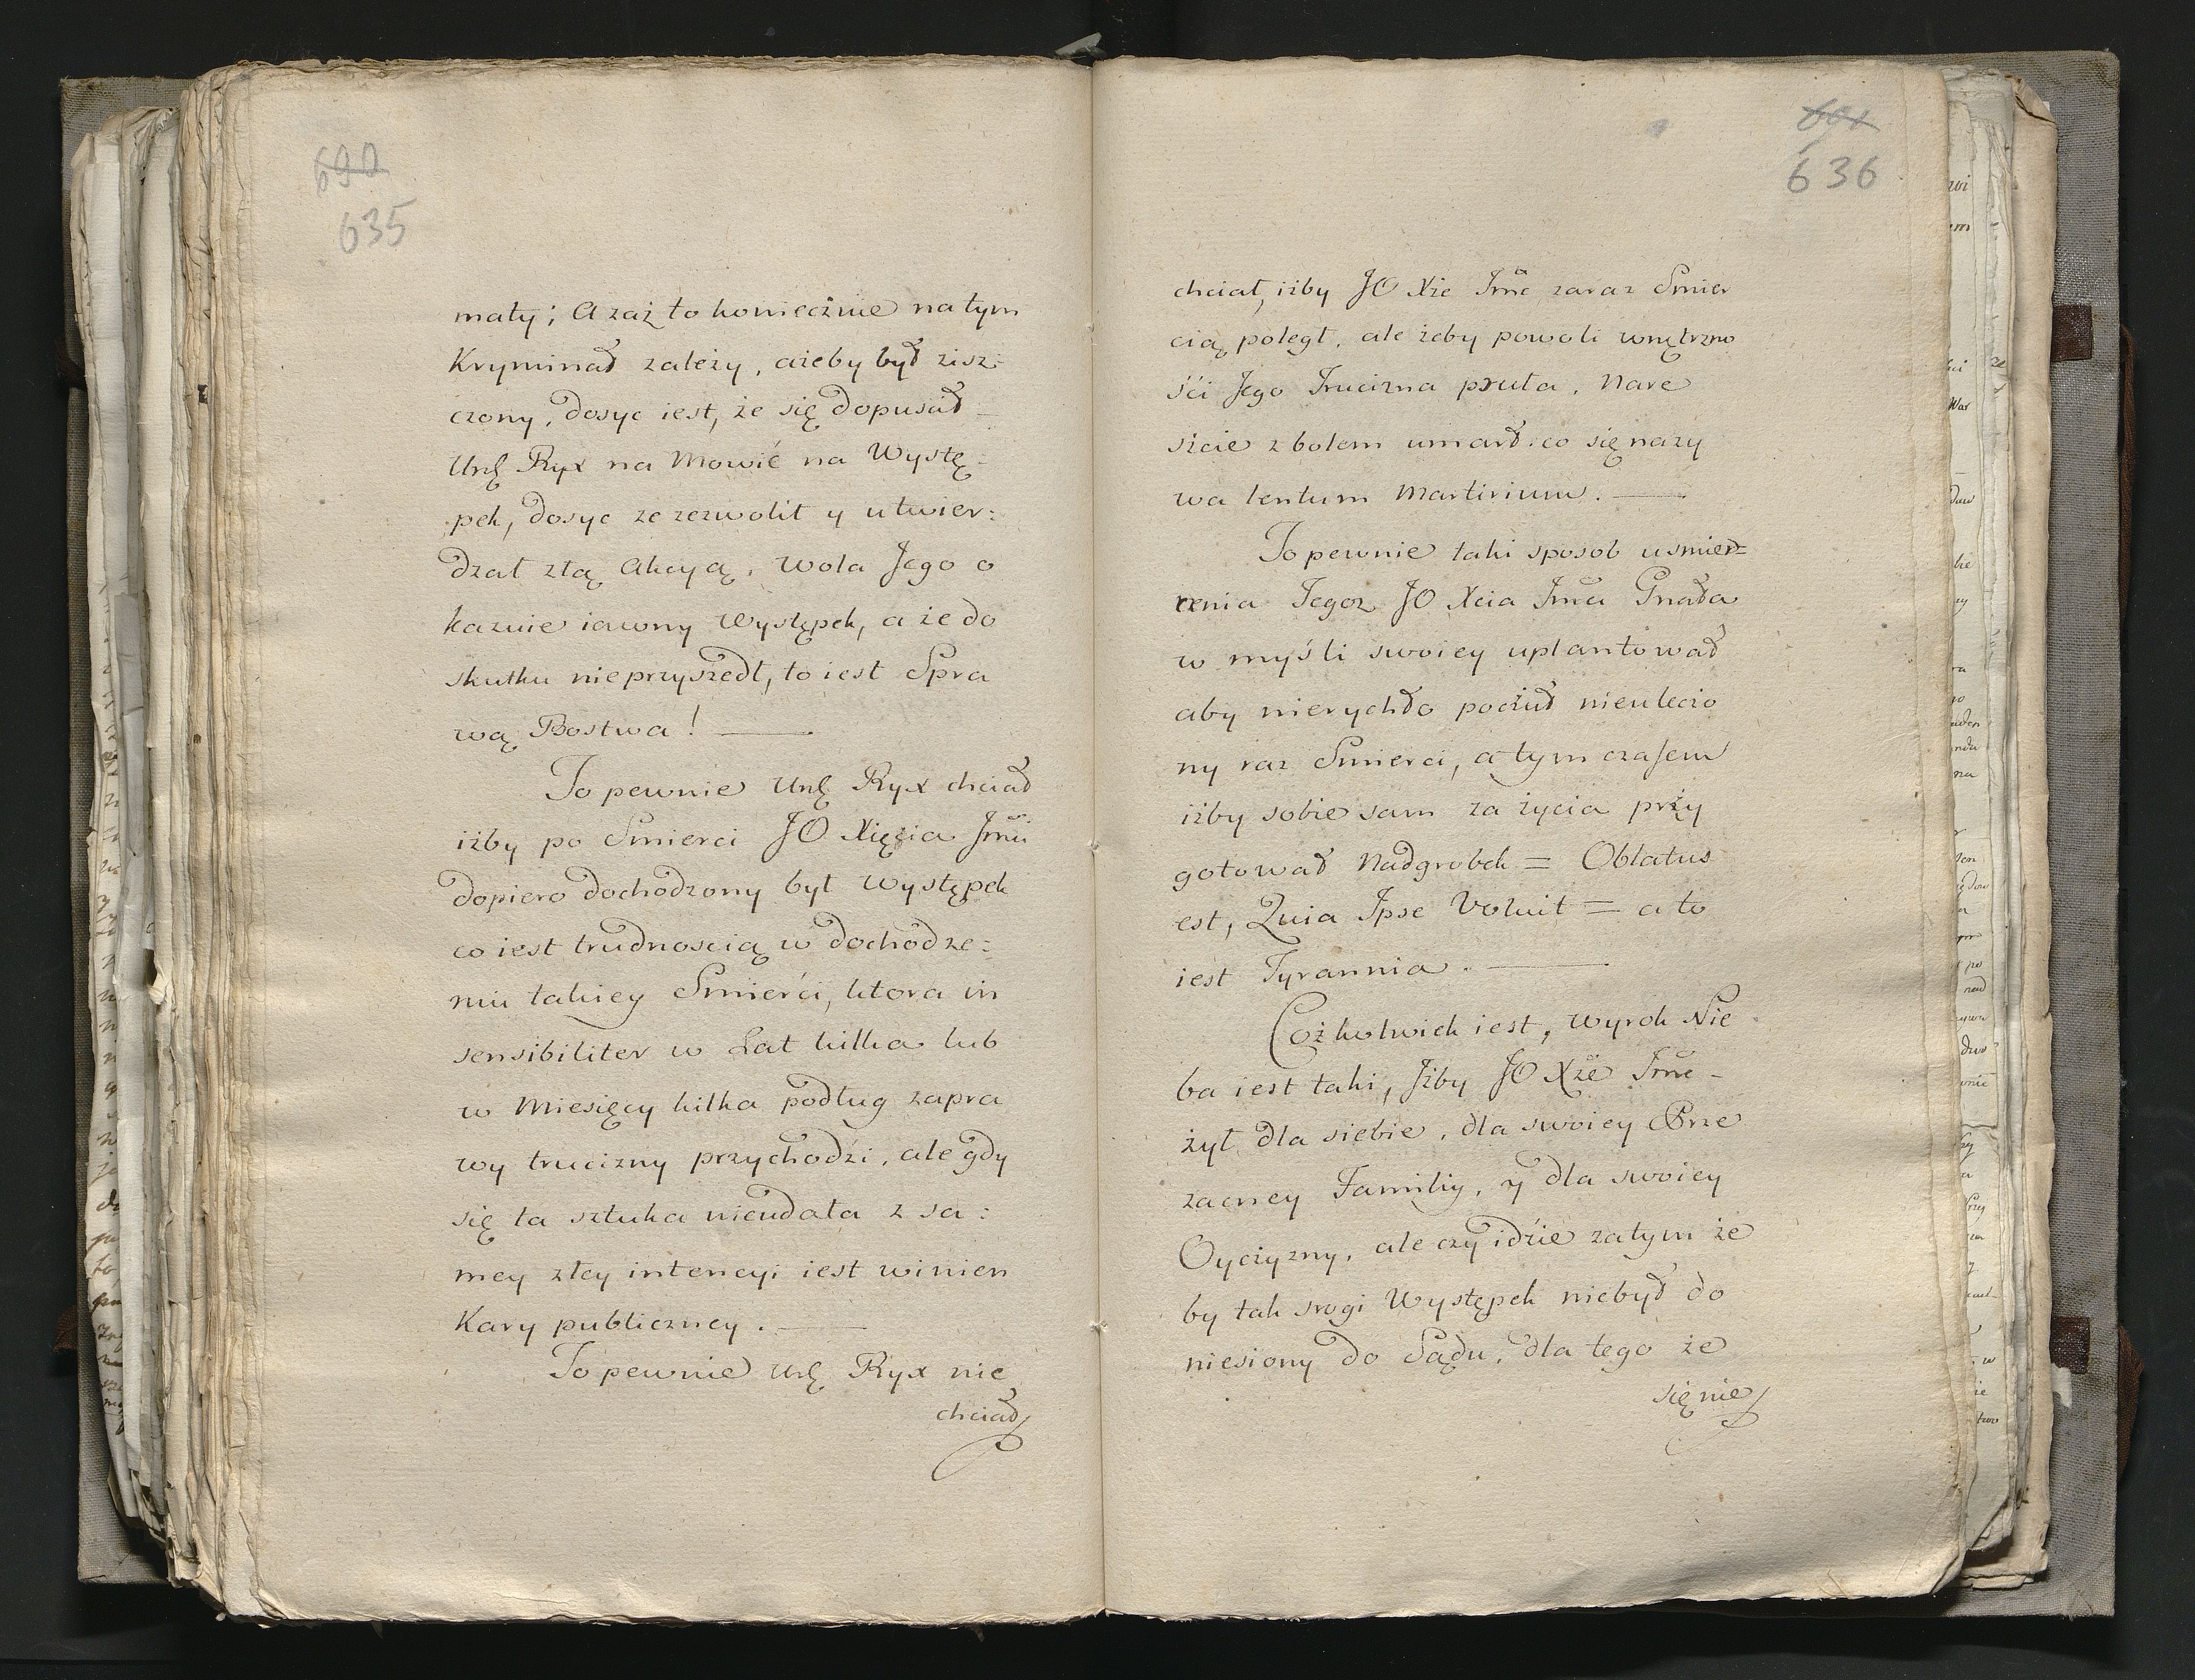 690
635
mały; A zaż to koniecznie na tym
Kryminał zależy, ażeby był zisz:
czony, dosyc iest, że się dopuścił
Urł Ryx na Mowić na Wystę-
pek, dosyc ze zezwolił y utwier:
dzał złą Akcyą, Wola Jego o
kazuie iawny Występek, a że do
skutku nieprzyszedł, to iest Spra
wą Bostwa!
To pewnie Urł Ryx chciał
iżby po Smierci JO Xięzia Jmći
dopiero dochodzony był Występek
co iest trudnoscią w dochodze:
niu takiey Smierći, ktora in
sensibiliter w Lat kilka lub
w Miesięcy kilka podług zapra
wy trucizny przychodźi, ale gdy
się ta sztuka nieudała z sa:
mey złey intencyi iest winien
Kary publiczney.
To pewnie Urł Ryx nie
chciał
636
chciał, iżby JO Xże Jmć zaraz Smier
cią poległ, ale żeby powoli wnętrzno
śći Jego Trucizna pruła, Nare
szcie z bolem umarł. co się nazy
wa lentum Martirium.
To pewnie taki sposob usmier=
cenia Tegoz JO Xcia Jmći Gnała
w myśli swoiey uplantował
aby nierychło poczuł nieulecżo
ny raz Smierci, a tym czasem
iżby sobie sam za życia przy
gotował Nadgrobek = Oblatus
est, Quia Ipse Voluit = a to
iest Tyrannia.
Cożkolwiek iest, wyrok Nie
ba iest taki, Jżby JO Xże Jmć -
żył dla siebie, dla swoiey Prze
zacney Familiy, y dla swoiey
Oyczyzny, ale czy idźie zatym że
by tak srogi Występek niebył do
niesiony do Sądu, dla tego że
się nie